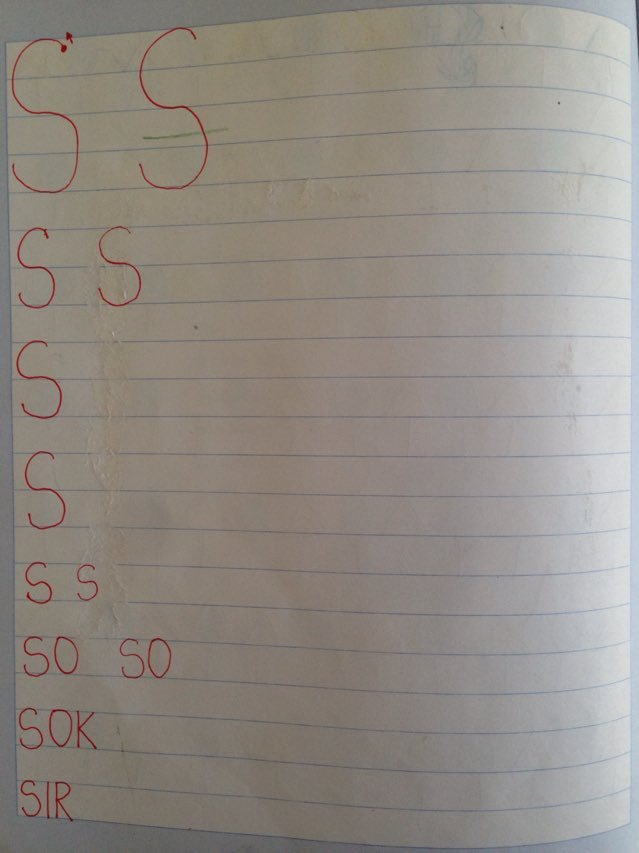 S S
S S
S
S
S S
SO SO
SOK
SIR